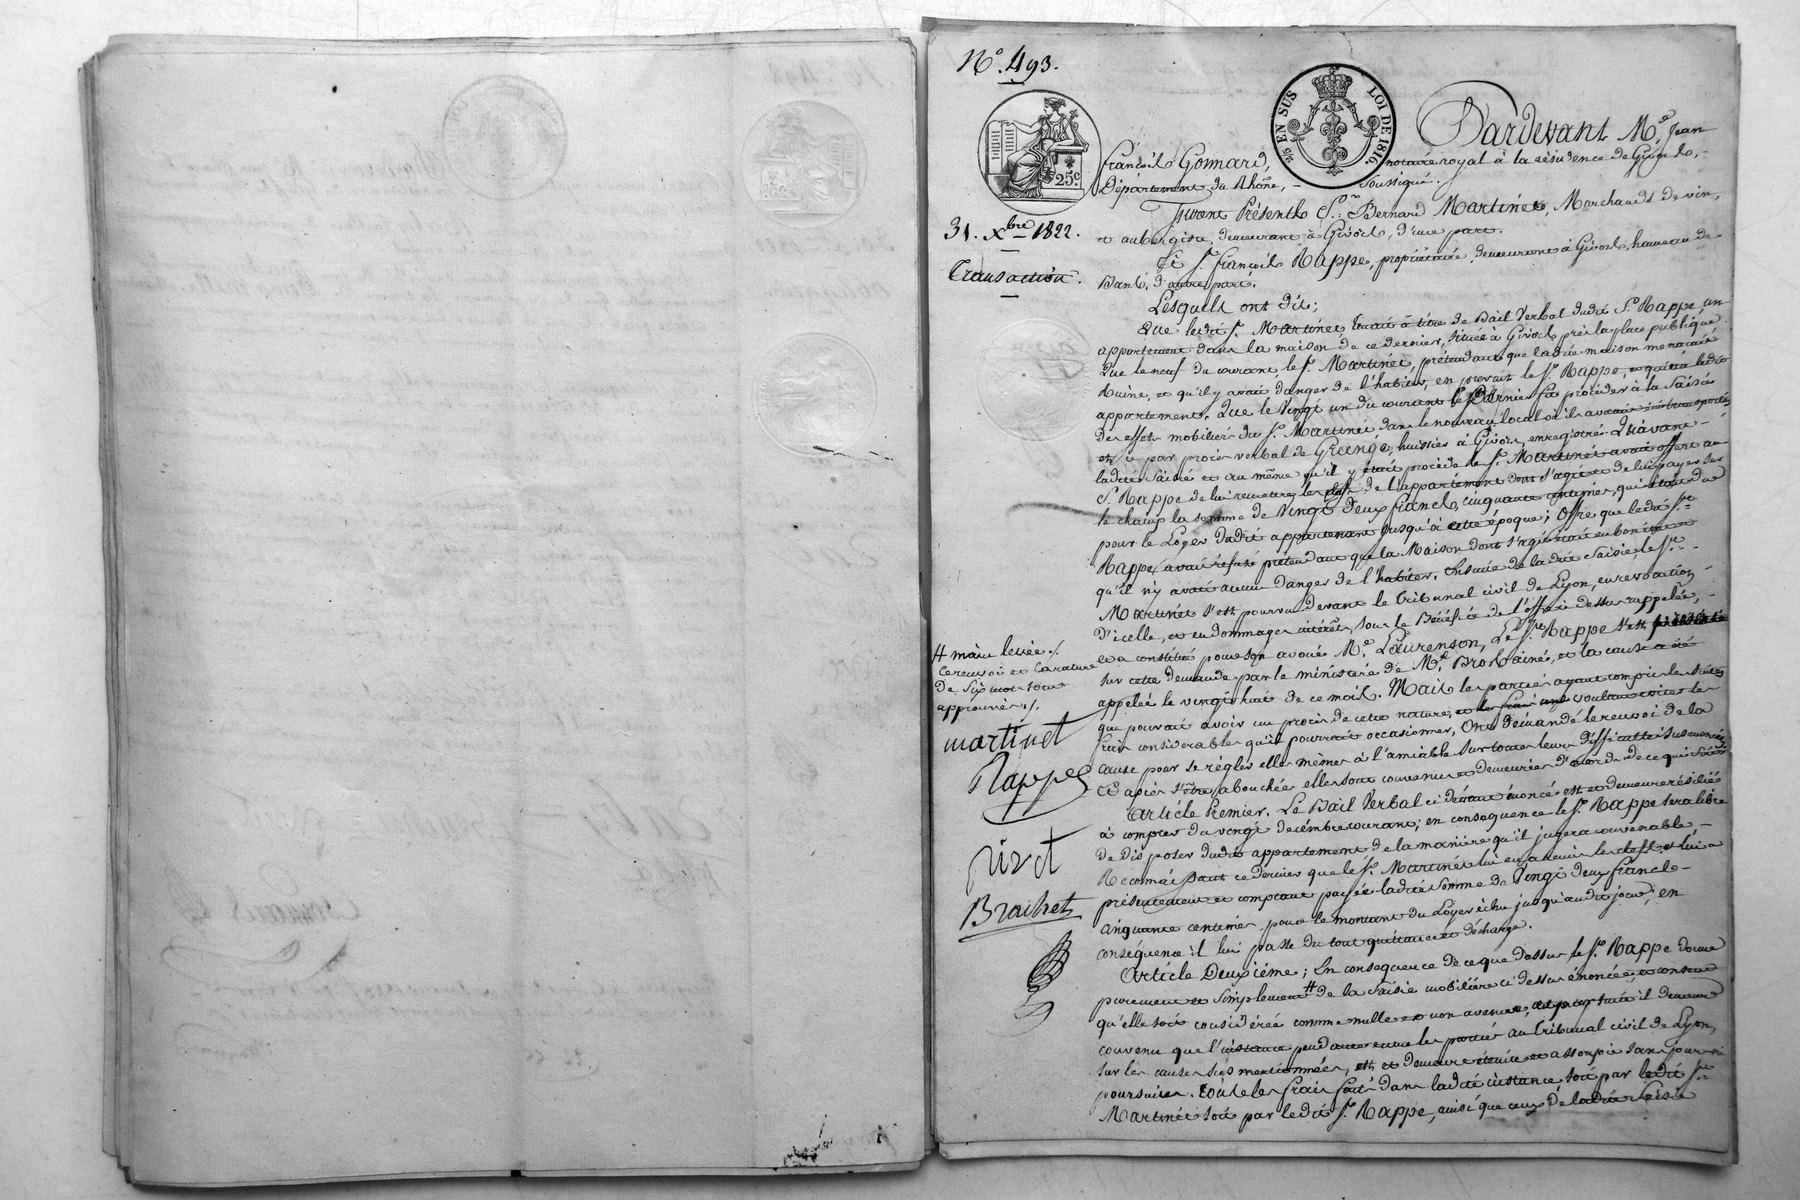 N.° 493.
25 EN SUS LOI DE 1816.
25.c
31. Xbre 1822.
Transaction.
Pardevant M.e Jean
François Gonnard, notaire royal à la résidence de Givors,
Département du Rhône, soussigné.
Furent Présents S.r Bernard Martinet, Marchand de vin,
et aubergiste, demeurant à Givors, d'une part.
Et S.r françois Rappe, propriétaire, demeurant à Givors, hameau de
Bans, d'autre part.
Lesquels ont dit;
Que ledit S.r Martinet tenait à titre de Bail Verbal dudit S.r Rappe un
appartement dans la maison de ce dernier, située à Givors près la place publique.
Que le neuf du courant, le S.r Martinet, prétendant que ladite maison menaçait
Ruine, et qu'il y avait danger de l'habiter, en prévint le S.r Rappe, et quitta ledit
appartement. Que le Vingt un du courant le Dernier fit procéder à la Saisie
des effets mobiliers du S.r Martinet dans le nouveau local où il avait
et ce par procès verbal de Grange, huissier à Givors, enregistré. Qu'avant
ladite Saisie et au même qu'il y était procédé le S.r Martinet avait offert au
S.r Rappe de lui remettre les clefs de l'appartement dont s'agit et de lui payer sur
le champ la somme de Vingt deux francs cinquante centimes, qui était due
pour le Loyer dudit appartement jusqu'à cette époque; Offre que ledit S.r
Rappe avait refusé prétendant que la Maison dont s'agit était en bon état et
qu'il n'y avait aucun Danger de l'habiter. Ensuite de ladite Saisie, le S.r
Martinet s'est pourvu devant le Tribunal civil de Lyon, en révocation
D'icelle, et en dommages intérêts, sous le Bénéfice de l'offre ci dessus rappelée,
et a constitué pour son avoué M.e Laurenson, Le S.r Rappe s'est présenté
sur cette demande par le ministère de M.e et la cause a été
appelée le vingt huit de ce mois. Mais les parties ayant compris les suites
que pouvait avoir un procès de cette nature, et les frais voulant éviter les
frais considérables qu'il pourrait occasionner, Ont demandé le renvoi de la
cause pour se régler elles mêmes à l'amiable sur toutes leurs difficultés susénoncées
Et après s'être abouchées elles sont convenues et demeurées D'accord de ce qui suit:
Article Premier. Le Bail Verbal ci devant énoncé est et demeure résilié
à compter du vingt decembre courant; en conséquence le S.r Rappe sera libre
de disposer dudit appartement de la manière qu'il jugera convenable
Reconnaissant ce dernier que le S.r Martinet lui en a remis les clefs, et lui a
présentement et comptant payé ladite somme de Vingt deux francs
cinquante centimes pour le montant du Loyer échu jusqu'audit jour, en
conséquence il lui passe du tout quittance et décharge.
Article Deuxième; En consequence de ce que dessus le S.r Rappe donne
purement et simplement # de la saisie mobilière ci dessus énoncée, et consent
qu'elle soit considérée comme nulle et non avenue, et par suite il demeure
convenu que l'instance pendante entre les parties au Tribunal civil de Lyon,
sur les causes sus mentionnées, est et demeure éteinte et assoupie sans pouvoir
poursuites. Tous les frais faits dans ladite instance, soit par ledit S.r
Martinet soit par ledit S.r Rappe, ainsi que ceux de ladite saisie
# main levée./.
Le renvoi et la rature
de six mots sont
approuvés./.
martinet
Rappe
Brachet